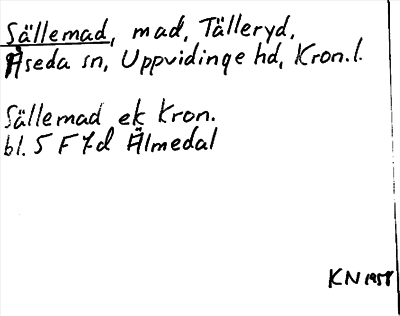 Sällemad, mad, Tälleryd,
Åseda sn, Uppvidinge hd, Kron.l.
Sällemad ek Kron.
bl. 5 F 7d Älmedal
KN 1958